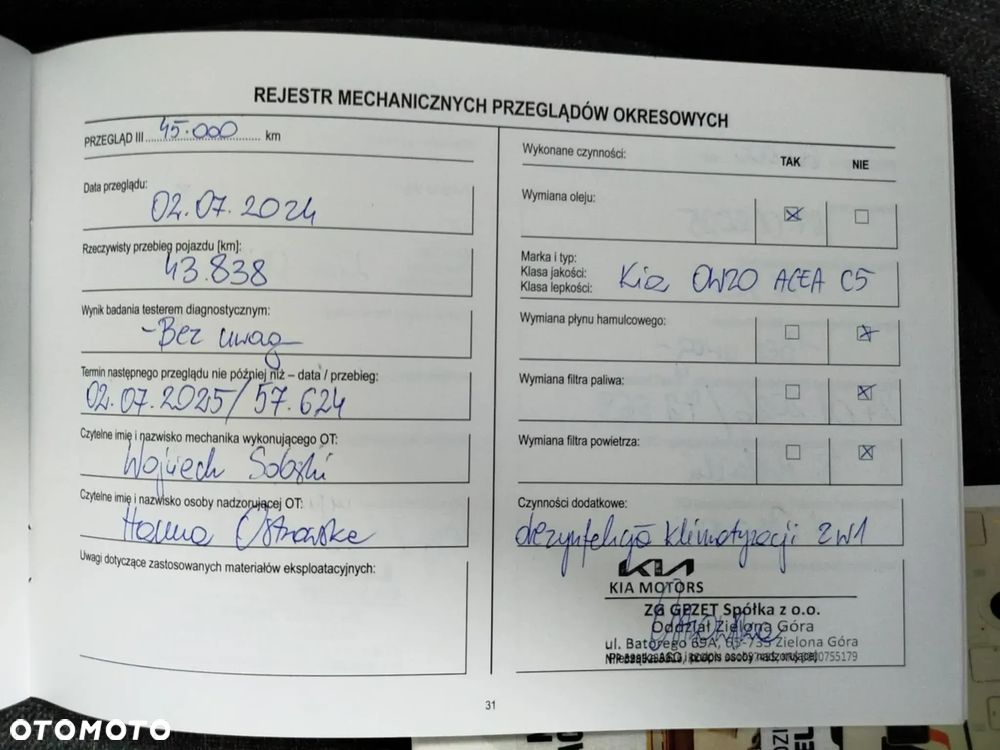 REJESTR MECHANICZNYCH PRZEGLĄDÓW OKRESOWYCH
PRZEGLĄD III 45.000 km
Data przeglądu:
02.07.2024
Rzeczywisty przebieg pojazdu [km]:
43.838
Wynik badania testerem diagnostycznym:
- Bez uwag
Termin następnego przeglądu nie później niż – data / przebieg:
02.07.2025/57.624
Czytelne imię i nazwisko mechanika wykonującego OT:
Wojciech Sobski
Czytelne imię i nazwisko osoby nadzorującej OT:
Hanna Ostrowska
Uwagi dotyczące zastosowanych materiałów eksploatacyjnych:
Wykonane czynności:
TAK
NIE
Wymiana oleju:
Marka i typ:
Klasa jakości:
Klasa lepkości:
Kia 0W20 ACEA C5
Wymiana płynu hamulcowego:
Wymiana filtra paliwa:
Wymiana filtra powietrza:
Czynności dodatkowe:
dezynfekcja klimatyzacji 2w1
KIA
KIA MOTORS
ZG GEZET Spółka z o.o.
Oddział Zielona Góra
ul. Batorego 69A, 65-735 Zielona Góra
Pieczątka ASO i podpis osoby nadzorującej
31
OTOMOTO